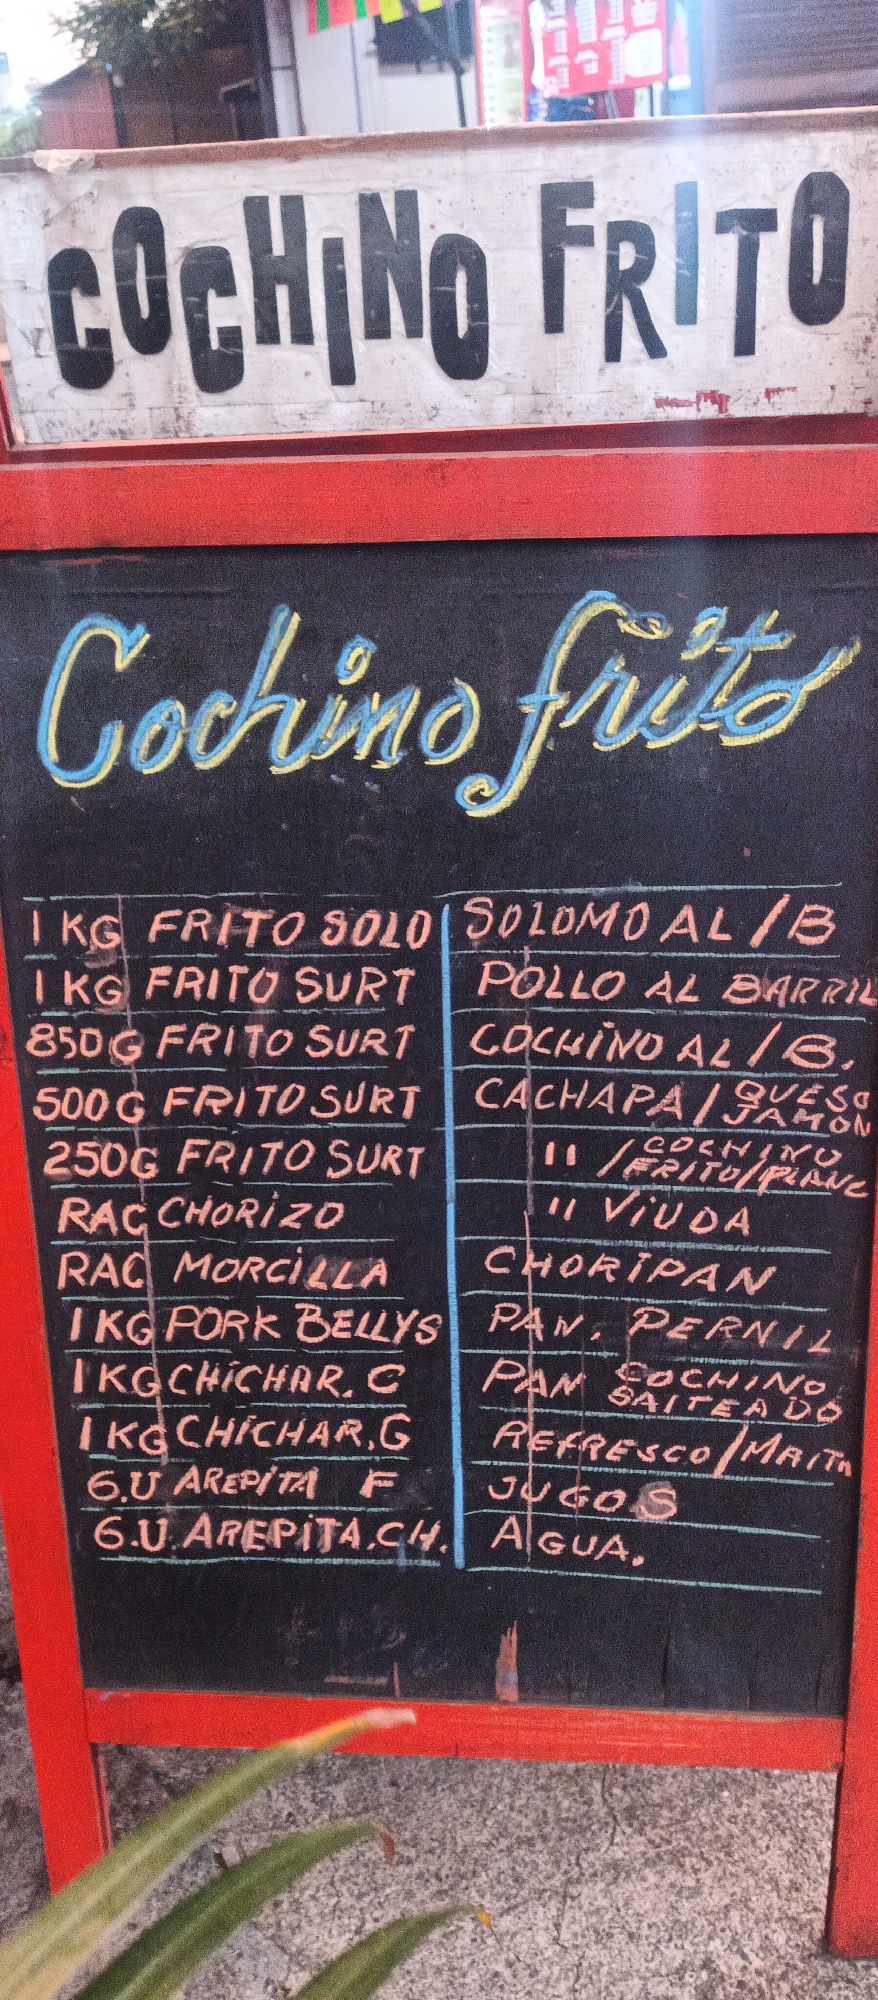 COCHINO FRITO
Cochino frito
1 KG FRITO SOLO
1 KG FRITO SURT
850 G FRITO SURT
500 G FRITO SURT
250G FRITO SURT
RAC CHORIZO
RAC MORCILLA
1 KG PORK BELLYS
1 KG CHICHAR. C
1 KG CHICHAR. G
6.U AREPITA F
6.U. AREPITA.CH.
SOLOMO AL / B
POLLO AL BARRIL
COCHINO AL / B.
CACHAPA / QUESO
JAMON
" / COCHINO
FRITO/PLANC
" VIUDA
CHORIPAN
PAN. PERNIL
PAN COCHINO
SALTEADO
REFRESCO/MALTA
JUGOS
AGUA.